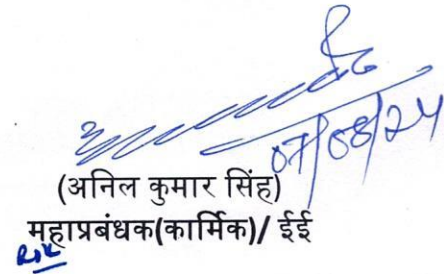 07/08/24
(अनिल कुमार सिंह)
महाप्रबंधक(कार्मिक)/ ईई